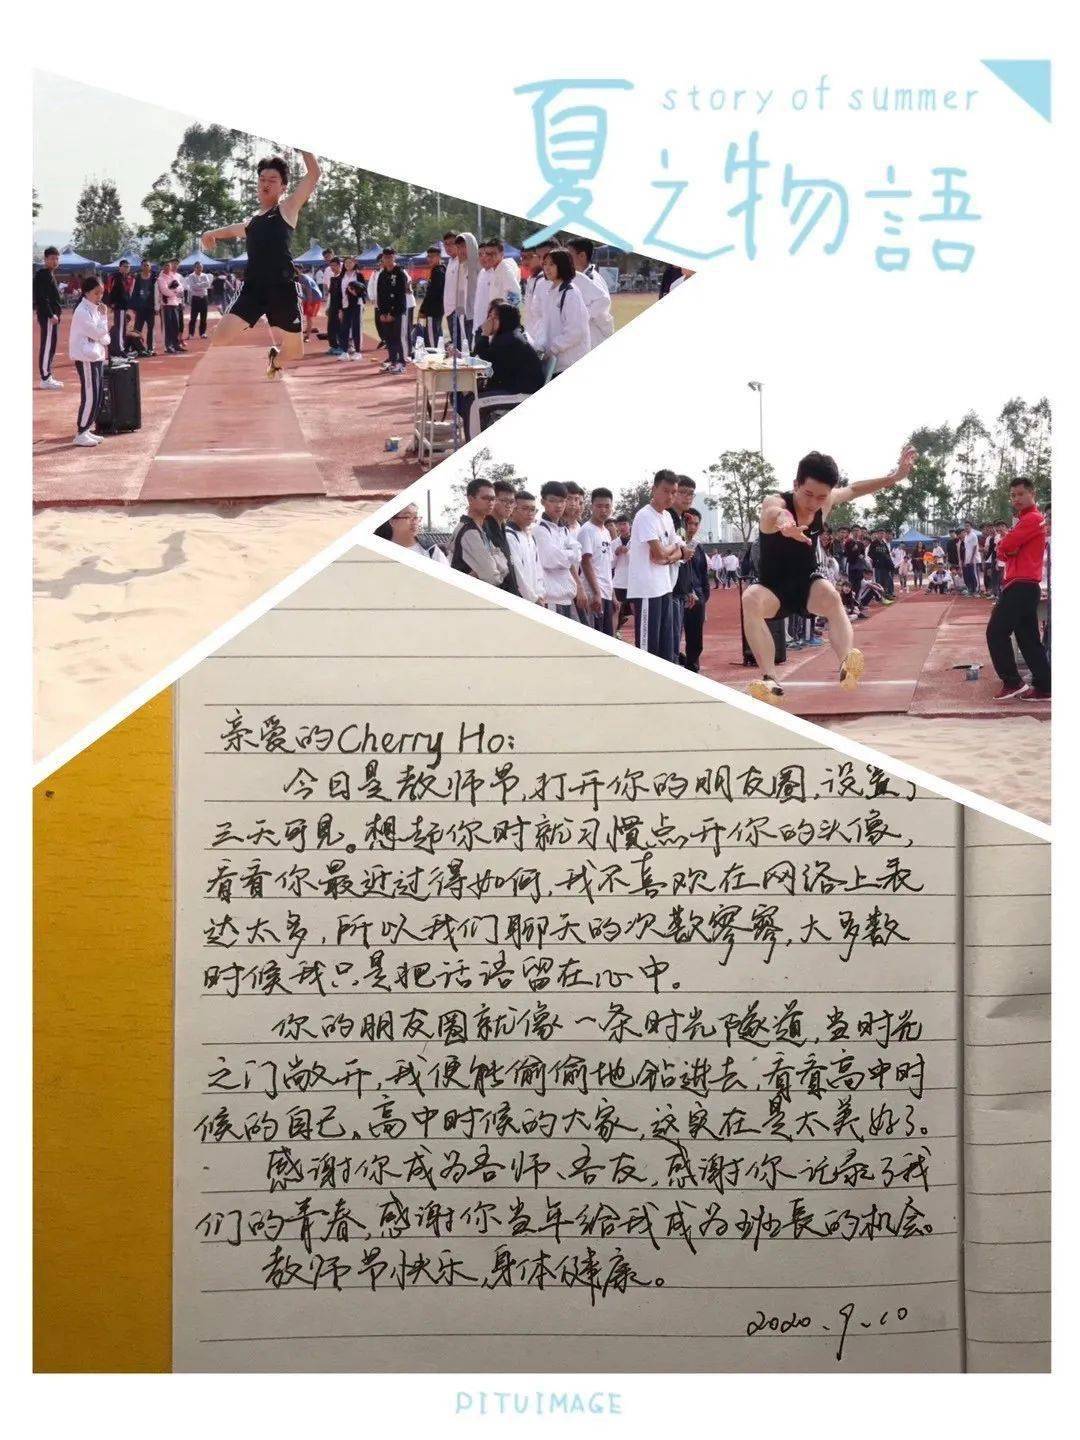 story of summer
夏之物語
亲爱的Cherry Ho:
今日是教师节,打开你的朋友圈,设置了
三天可见。想起你时就习惯点开你的头像,
看看你最近过得如何,我不喜欢在网络上表
达太多,所以我们聊天的次数寥寥,大多数
时候我只是把话语留在心中。
你的朋友圈就像一条时光隧道,当时光
之门敞开,我便能偷偷地钻进去,看看高中时
候的自己、高中时候的大家,这实在是太美好了。
感谢你成为吾师、吾友,感谢你记录了我
们的青春,感谢你当年给我成为班長的机会。
教师节快乐,身体健康。
2020.9.10
PITUIMAGE